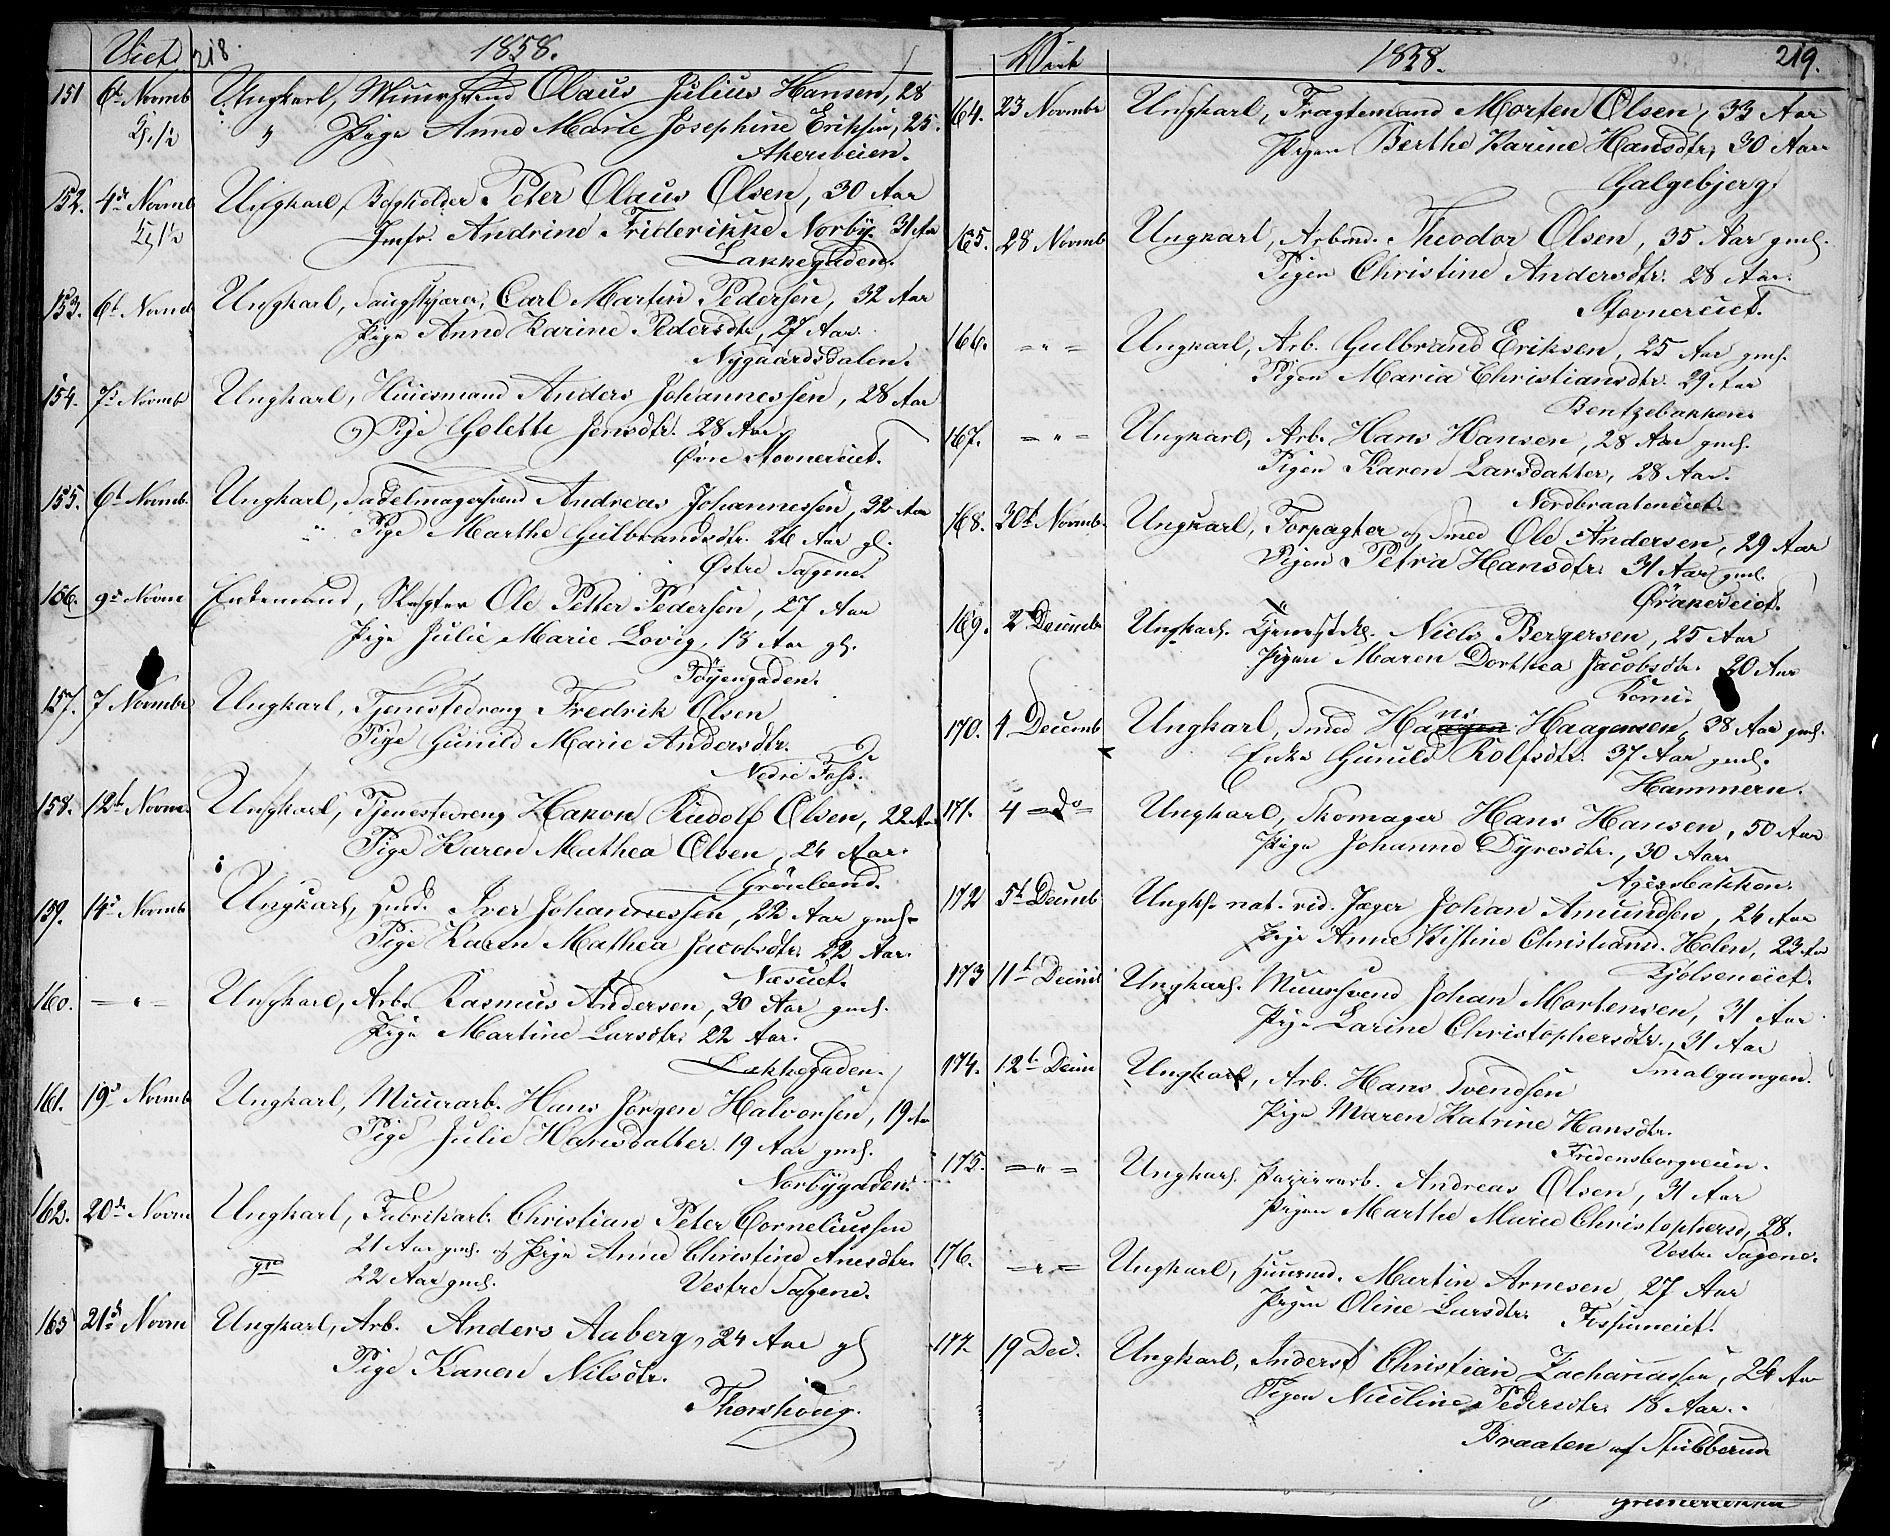 Viet 218. 1858.
151 6te Novmb Ungkarl, Muursvend Olaus Julius Hansen, 28
" Pige Anne Marie Josephine Eriksen, 25.
Akersveien.
152. 4de Novmb Ungkarl, Bogholder Peter Olaus Olsen, 30 Aar
Jmfr. Andrine Friderikke Norby. 31 Aar
Lakkegaden.
153. 6t Novmb Ungkarl, Saugskjærer, Carl Martin Pedersen, 32 Aar
Pige Anne Karine Pedersdtr, 27 Aar.
Nygaardsdalen.
154. 7de Novmb Ungkarl, Huusmand Anders Johannessen, 28 Aar
Pige Golette Jensdtr. 28 Aar
Øvre Stovnereiet.
155. 6t Novmb. Ungkarl, Sadelmagersvend Andreas Johannessen, 32 Aar
" Pige Marthe Gulbrandsdtr. 26 Aar gl.
Østre Sagene.
156. 9de Novm Enkemand, Slagter Ole Petter Pedersen, 27 Aar
Pige Julie Marie Lovig, 18 Aar gl.
Töyengaden.
157. 7 Novmbr Ungkarl, Tjenestedreng Fredrik Olsen
Pige Gunild Marie Andersdtr.
Nedre Foss.
158. 12t Novm. Ungkarl, Tjenestedreng Hakon Rudolf Olsen, 22 Aar
Pige Karen Mathea Olsen, 24 Aar.
Grönland.
159. 14de Novmb Ungkarl, Iver Johannessen, 22 Aar gml.
Pige Karen Mathea Jacobsdtr. 22 Aar.
Næseiet.
160. — " — Ungkarl, Arb. Rasmus Andersen, 30 Aar gml.
Pige Martine Larsdtr. 22 Aar.
Lakkegaden.
161. 19de Novmb Ungkarl, Muurarb. Hans Jörgen Halvorsen, 19 Aar
Pige Julie Hansdatter. 19 Aar gml.
Norbygaden.
162. 20de Novm Ungkarl, Fabrikarb. Christian Peter Corneliussen
21 Aar gml. og Pige Anne Christine Anesdtr.
22 Aar gml. Vestre Sagene.
163 21de Novm Ungkarl, Arb. Anders Aaberg, 24 Aar gl
Pige Karen Nilsdtr.
Thorshoug.
Viet 1858. 219.
164. 23 Novmbr Ungkarl, Fragtemand Morten Olsen, 33 Aar
Pigen Berthe Karine Hansdtr, 30 Aar
Galgebjerg.
165. 28 Novmb Ungkarl, Arbmd. Theodor Olsen, 35 Aar gml.
Pigen Christine Andersdtr. 28 Aar.
Stovnereiet.
166. — " — Ungkarl, Arb. Gulbrand Eriksen, 25 Aar gml.
Pigen Maria Christiansdtr. 29 Aar
Bentzebakken.
167. — " — Ungkarl, Arb. Hans Hansen, 28 Aar gml.
Pigen Karen Larsdatter, 28 Aar.
Nordbraateneiet.
168. 30t Novmb. Ungkarl, Forpagter og Smed Ole Andersen, 29 Aar
Pigen Petra Hansdtr. 31 Aar gml.
Örakereiet.
169. 2 Decemb Ungkarl. Tjenestkl. Niels Bergersen, 25 Aar
Pigen Maren Dorthea Jacobsdtr. 20 Aar
170. 4 Decemb Ungkarl, Smed Hans Haagensen, 38 Aar gml.
Enke Gunild Rolfsdtr. 37 Aar gml.
Hammern.
171. 4 — do — Ungkarl, Skomager Hans Hansen, 50 Aar
Pige Johanne Dyresdtr., 30 Aar.
Agersbakken.
172 5t Decmb Ungkl. nat. vid. Jæger Johan Amundsen, 24 Aar
Pige Anne Kistine Christians. Holen, 23 Aar
Kjölseneiet.
173 11t Decmb Ungkarl. Muursvend Johan Mortensen, 31 Aar
Pige Larine Christophersdtr., 31 Aar
Smalgangen.
174. 12t Decm Ungkarl, Arb. Hans Svendsen
Pige Maren Katrine Hansdtr.
Fredensborgveien.
175. — " — Ungkarl. Papirarb. Andreas Olsen, 31 Aar
Pigen Marthe Marie Christophersd, 28.
Vestre Sagene.
176. — " — Ungkarl, Huusmd. Martin Arnesen, 27 Aar
Pigen Oline Larsdtr. Fossumeiet.
177. 19 Dec. Ungkarl, Inderst Christian Zachariassen, 26 Aar
Pigen Nicoline Pedersdtr. 18 Aar.
Braaten af Stubberud